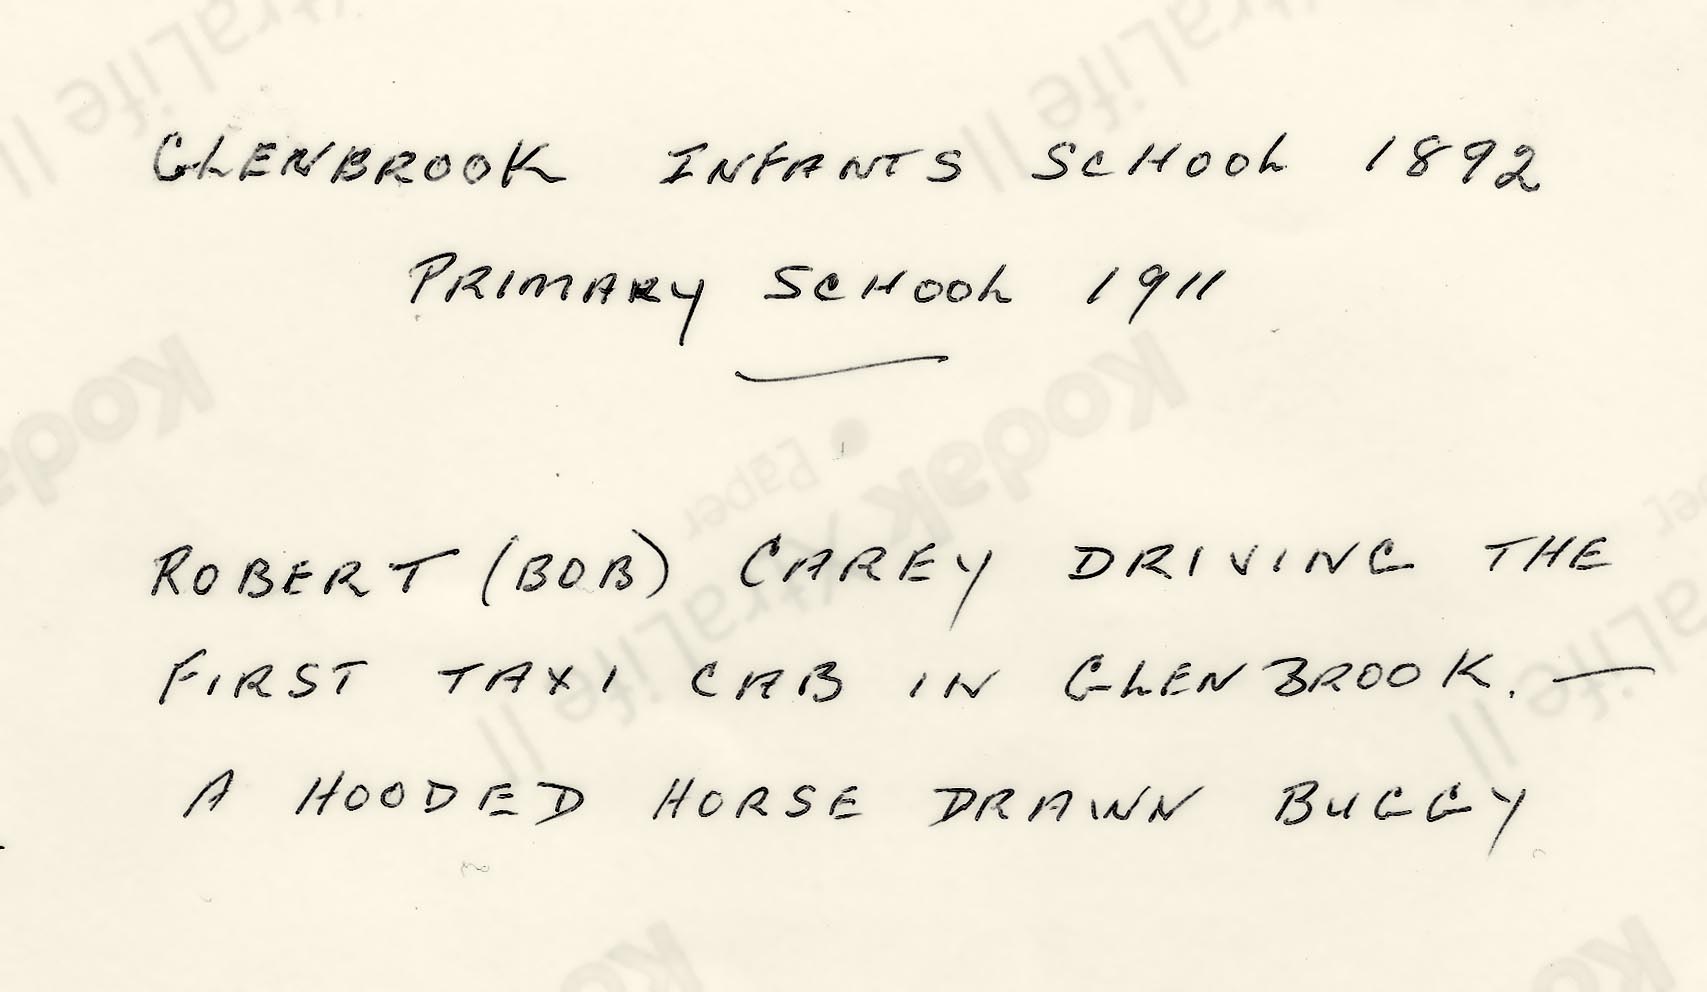 GLENBROOK INFANTS SCHOOL 1892
PRIMARY SCHOOL 1911
ROBERT (BOB) CAREY DRIVING THE
FIRST TAXI CAB IN GLENBROOK. —
A HOODED HORSE DRAWN BUGGY
Kodak XtraLife II
Paper